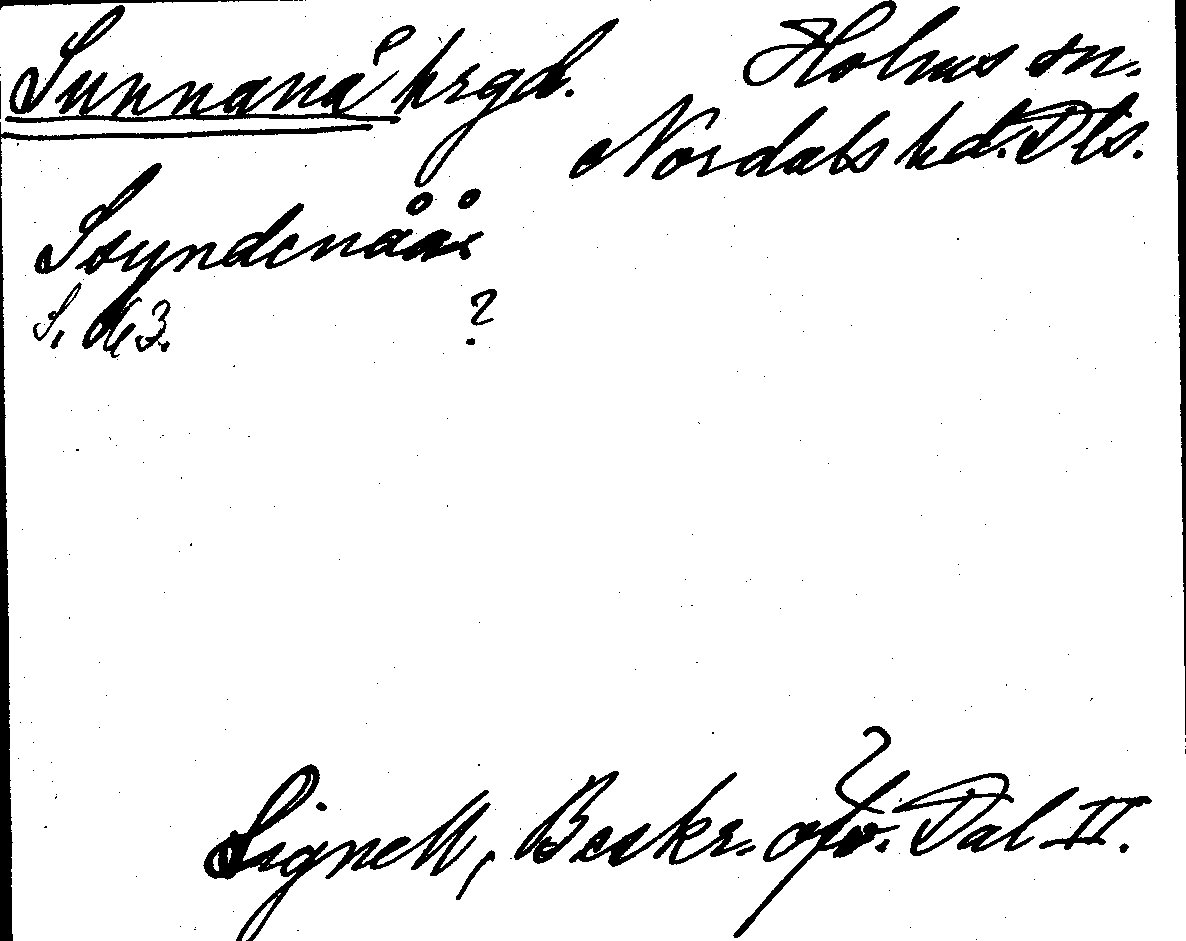 Sunnanå hrgd. Holms sn.
Nordals hd. Dls.
Ssyndenåår
S. 3. ?
Signell, Beskr. öfv. Dal II.